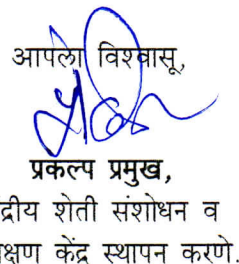 आपला विश्वासू,
प्रकल्प प्रमुख,
द्रीय शेती संशोधन व
क्षण केंद्र स्थापन करणे.